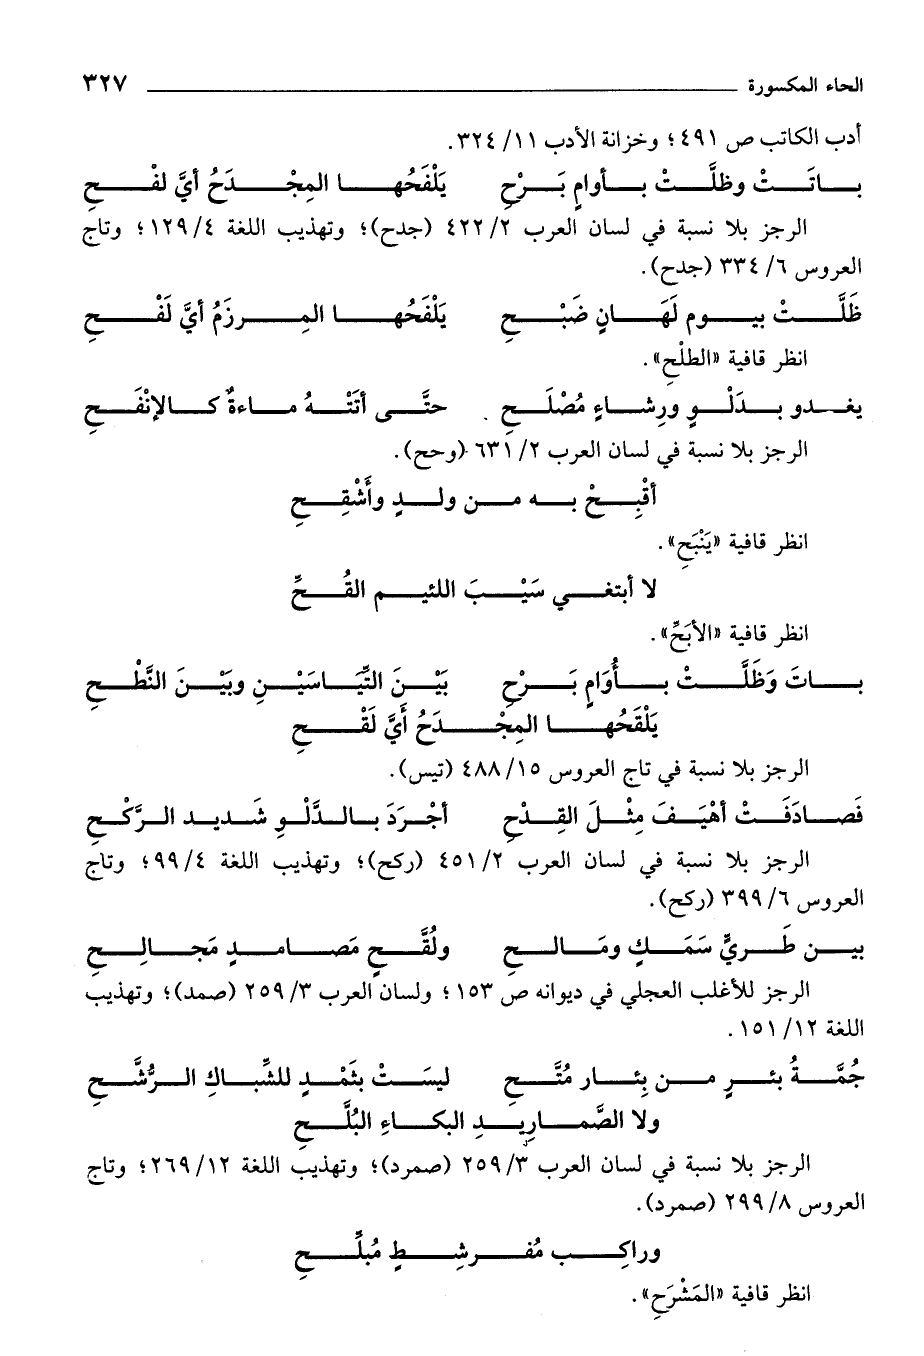 الحاء المكسورة ٣٢٧
أدب الكاتب ص ٤٩١؛ وخزانة الأدب ١١/ ٣٢٤.
بـاتَـتْ وظلَّـتْ بـأوامٍ بَـرْحِ يَلْفَحُهـا المِجْـدَحُ أيَّ لفْـحِ
الرجز بلا نسبة في لسان العرب ٢/ ٤٢٢ (جدح)؛ وتهذيب اللغة ٤/ ١٢٩؛ وتاج
العروس ٦/ ٣٣٤ (جدح).
ظَلَّـتْ بيـوم لَهَـانٍ ضَبْـحِ يَلْفَحُهـا المِـرزَمُ أيَّ لَفْـحِ
انظر قافية «الطلْحِ».
يغـدو بـدَلْـوٍ ورِشـاءٍ مُصْلَـحِ حتَّـى أتَتْـهُ مـاءةٌ كـالإنْفَـحِ
الرجز بلا نسبة في لسان العرب ٢/ ٦٣١ (وحح).
أقْبِـحْ بـه مـن ولـدٍ وأَشْقِـحِ
انظر قافية «يَنْبَحِ».
لا أبتغـي سَيْـبَ اللئيـم القُـحِّ
انظر قافية «الأبَحِّ».
بـاتَ وَظَلَّـتْ بـأُوَامٍ بَـرْحِ بَيْـنَ التِّيَـاسَيْـنِ وبَيْـنَ النَّطْـحِ
يَلْقَحُهـا المِجْـدَحُ أَيَّ لَقْـحِ
الرجز بلا نسبة في تاج العروس ١٥/ ٤٨٨ (تيس).
فَصـادَفَـتْ أهْيَـفَ مِثْـلَ القِـدْحِ أجْـرَدَ بـالـدَّلْـوِ شَـديـد الـرَّكْـحِ
الرجز بلا نسبة في لسان العرب ٢/ ٤٥١ (ركح)؛ وتهذيب اللغة ٤/ ٩٩؛ وتاج
العروس ٦/ ٣٩٩ (ركح).
بيـن طَـريٍّ سَمَـكٍ ومَـالـحِ ولُقَّـحٍ مَصـامـدٍ مَجـالِـحِ
الرجز للأغلب العجلي في ديوانه ص ١٥٣؛ ولسان العرب ٣/ ٢٥٩ (صمد)؛ وتهذيب
اللغة ١٢/ ١٥١.
جُمَّـةُ بئـرٍ مـن بِئـار مُتَّـحِ ليسَـتْ بثَمْـدٍ للشِّبـاكِ الـرُّشَّـحِ
ولا الصَّمـارِيـدِ البكـاءِ البُلَّـحِ
الرجز بلا نسبة في لسان العرب ٣/ ٢٥٩ (صمرد)؛ وتهذيب اللغة ١٢/ ٢٦٩؛ وتاج
العروس ٨/ ٢٩٩ (صمرد).
وراكِـب مُفـرشِـطٍ مُبلِّـحِ
انظر قافية «المَشْرَحِ».